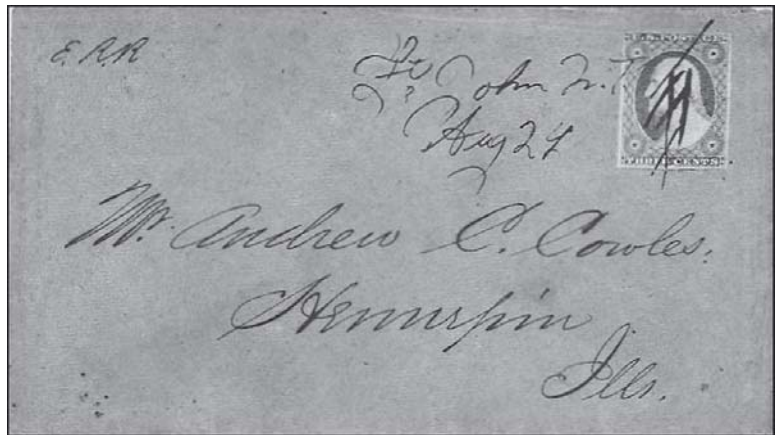 E. R.R
St. John N.T
Aug 24
THREE CENTS
Mr. Andrew C. Cowles.
Hennepin
Ills.